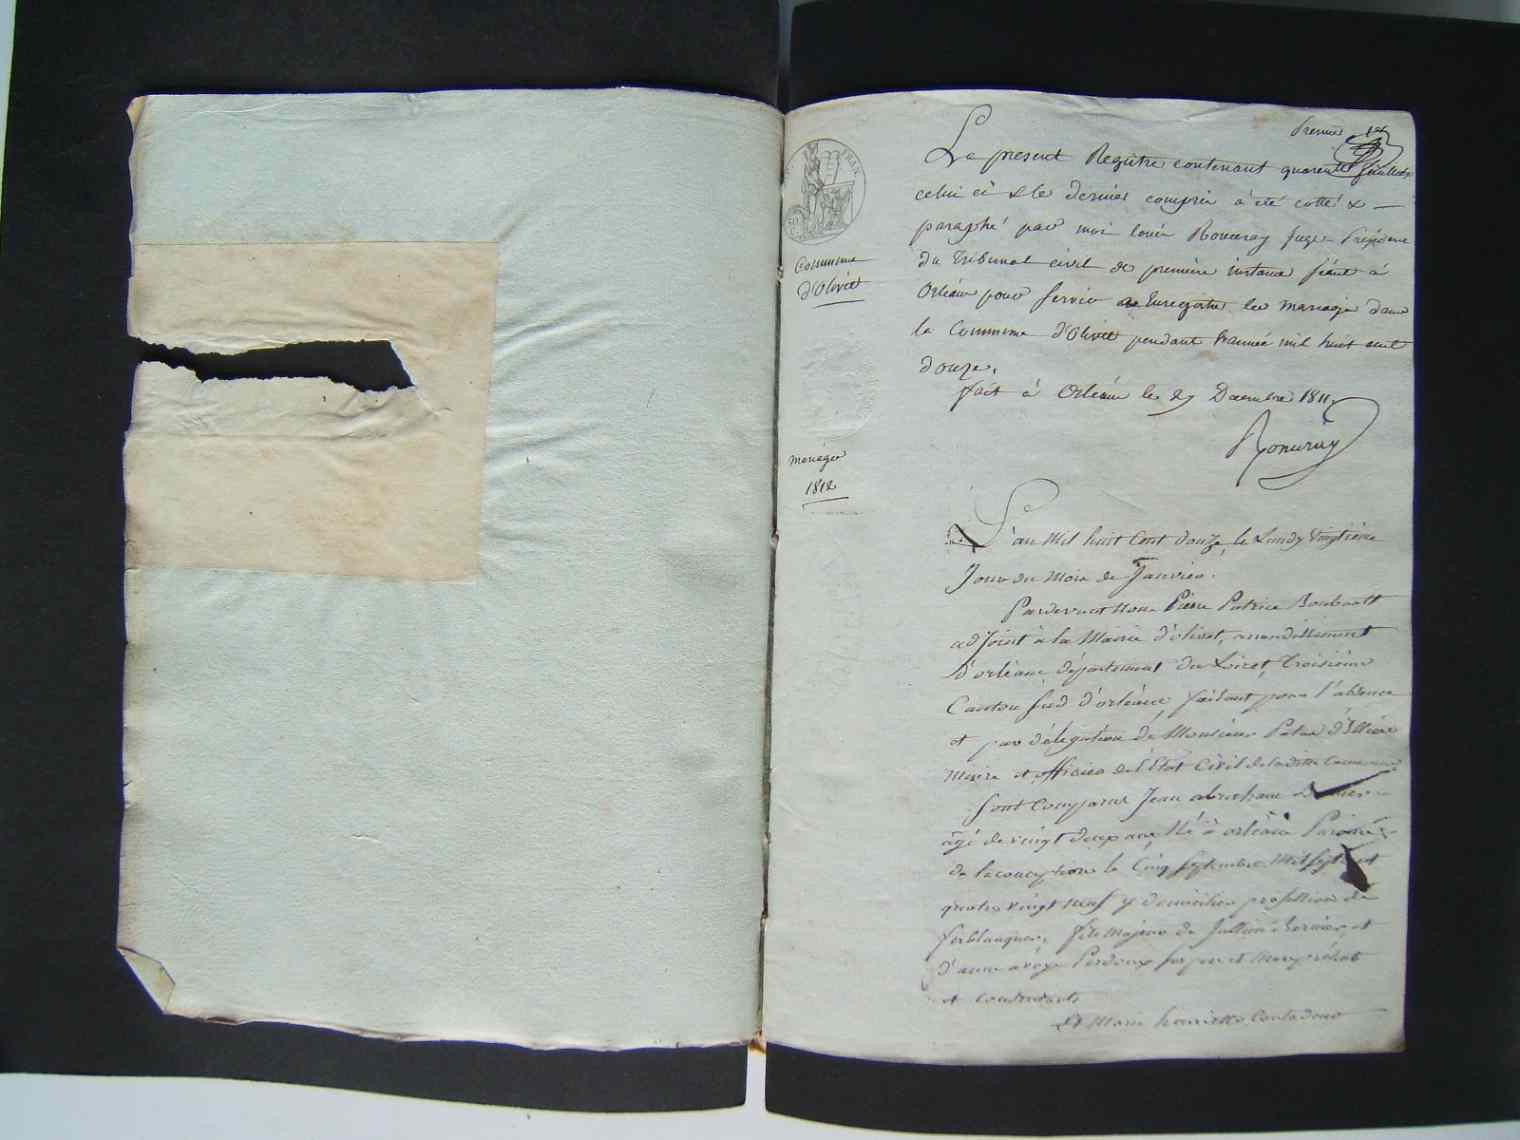 Premier
Le present Registre contenant quarente feuillets
celui ci & le dernier compris à été cotté &
paraphé par moi Louis Président
du Tribunal civil de premiere instance séant à
Orléans pour servir a Enregistrer les mariages dans
la Commune d'Olivet pendant l'année mil huit cent
douze.
fait à Orléans le Décembre 1811.
Commune
d'Olivet
mariages
1812
L'an Mil huit Cent douze, le Lundy Vingtième
Jour du Mois de Janvier.
Pardevant Nous Pierre Patrice
adjoint à la Mairie d'olivet, arrondissement
d'orléans département du Loiret, troisième
Canton sud d'orléans, faisant pour l'absence
et par délégation de Monsieur
Maire et officier de l'Etat Civil de la ditte Commune
Sont Comparus Jean abraham
âgé de vingt deux ans, Né à orléans Paroisse
de la conception le Cinq Septembre Mil Sept Cent
quatre vingt neuf y domicilié profession de
ferblanquier, fils Majeur de Jullien et
d'anne Perdoux
et Consentants
Et Marie henriette